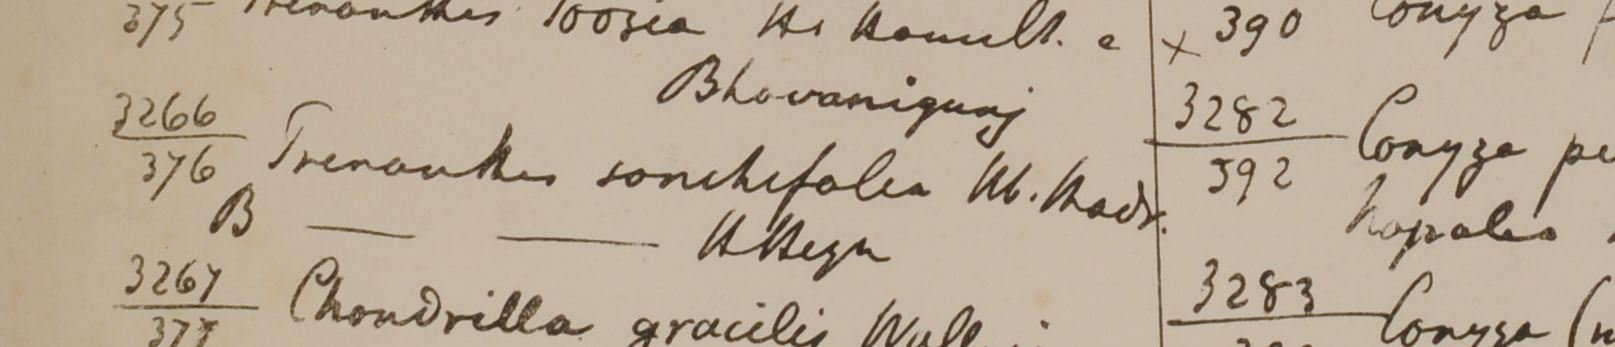 375 Prenanthes Toosea Hb Hamilt. e
Bhovanigunj
3266
376 Prenanthes sonchifolia Hb. Madr.
B — — H Heyn
3267
377 Chondrilla gracilis Wall
× 390 Conyza
3282
392 Conyza
Napalia
3283 Conyza